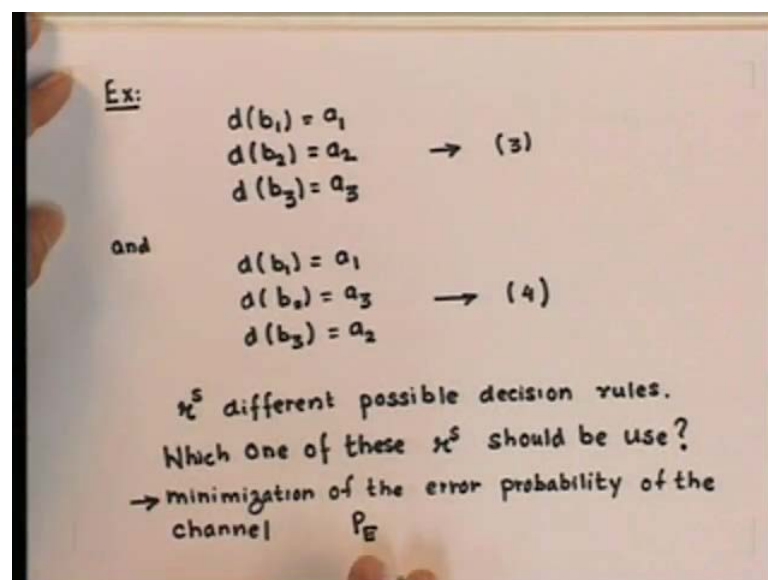 Ex:
d(b₁) = a₁
d(b₂) = a₂ → (3)
d(b₃) = a₃
and
d(b₁) = a₁
d(b₂) = a₃ → (4)
d(b₃) = a₂
r^s different possible decision rules.
Which one of these r^s should be use?
→ minimization of the error probability of the
channel P_E